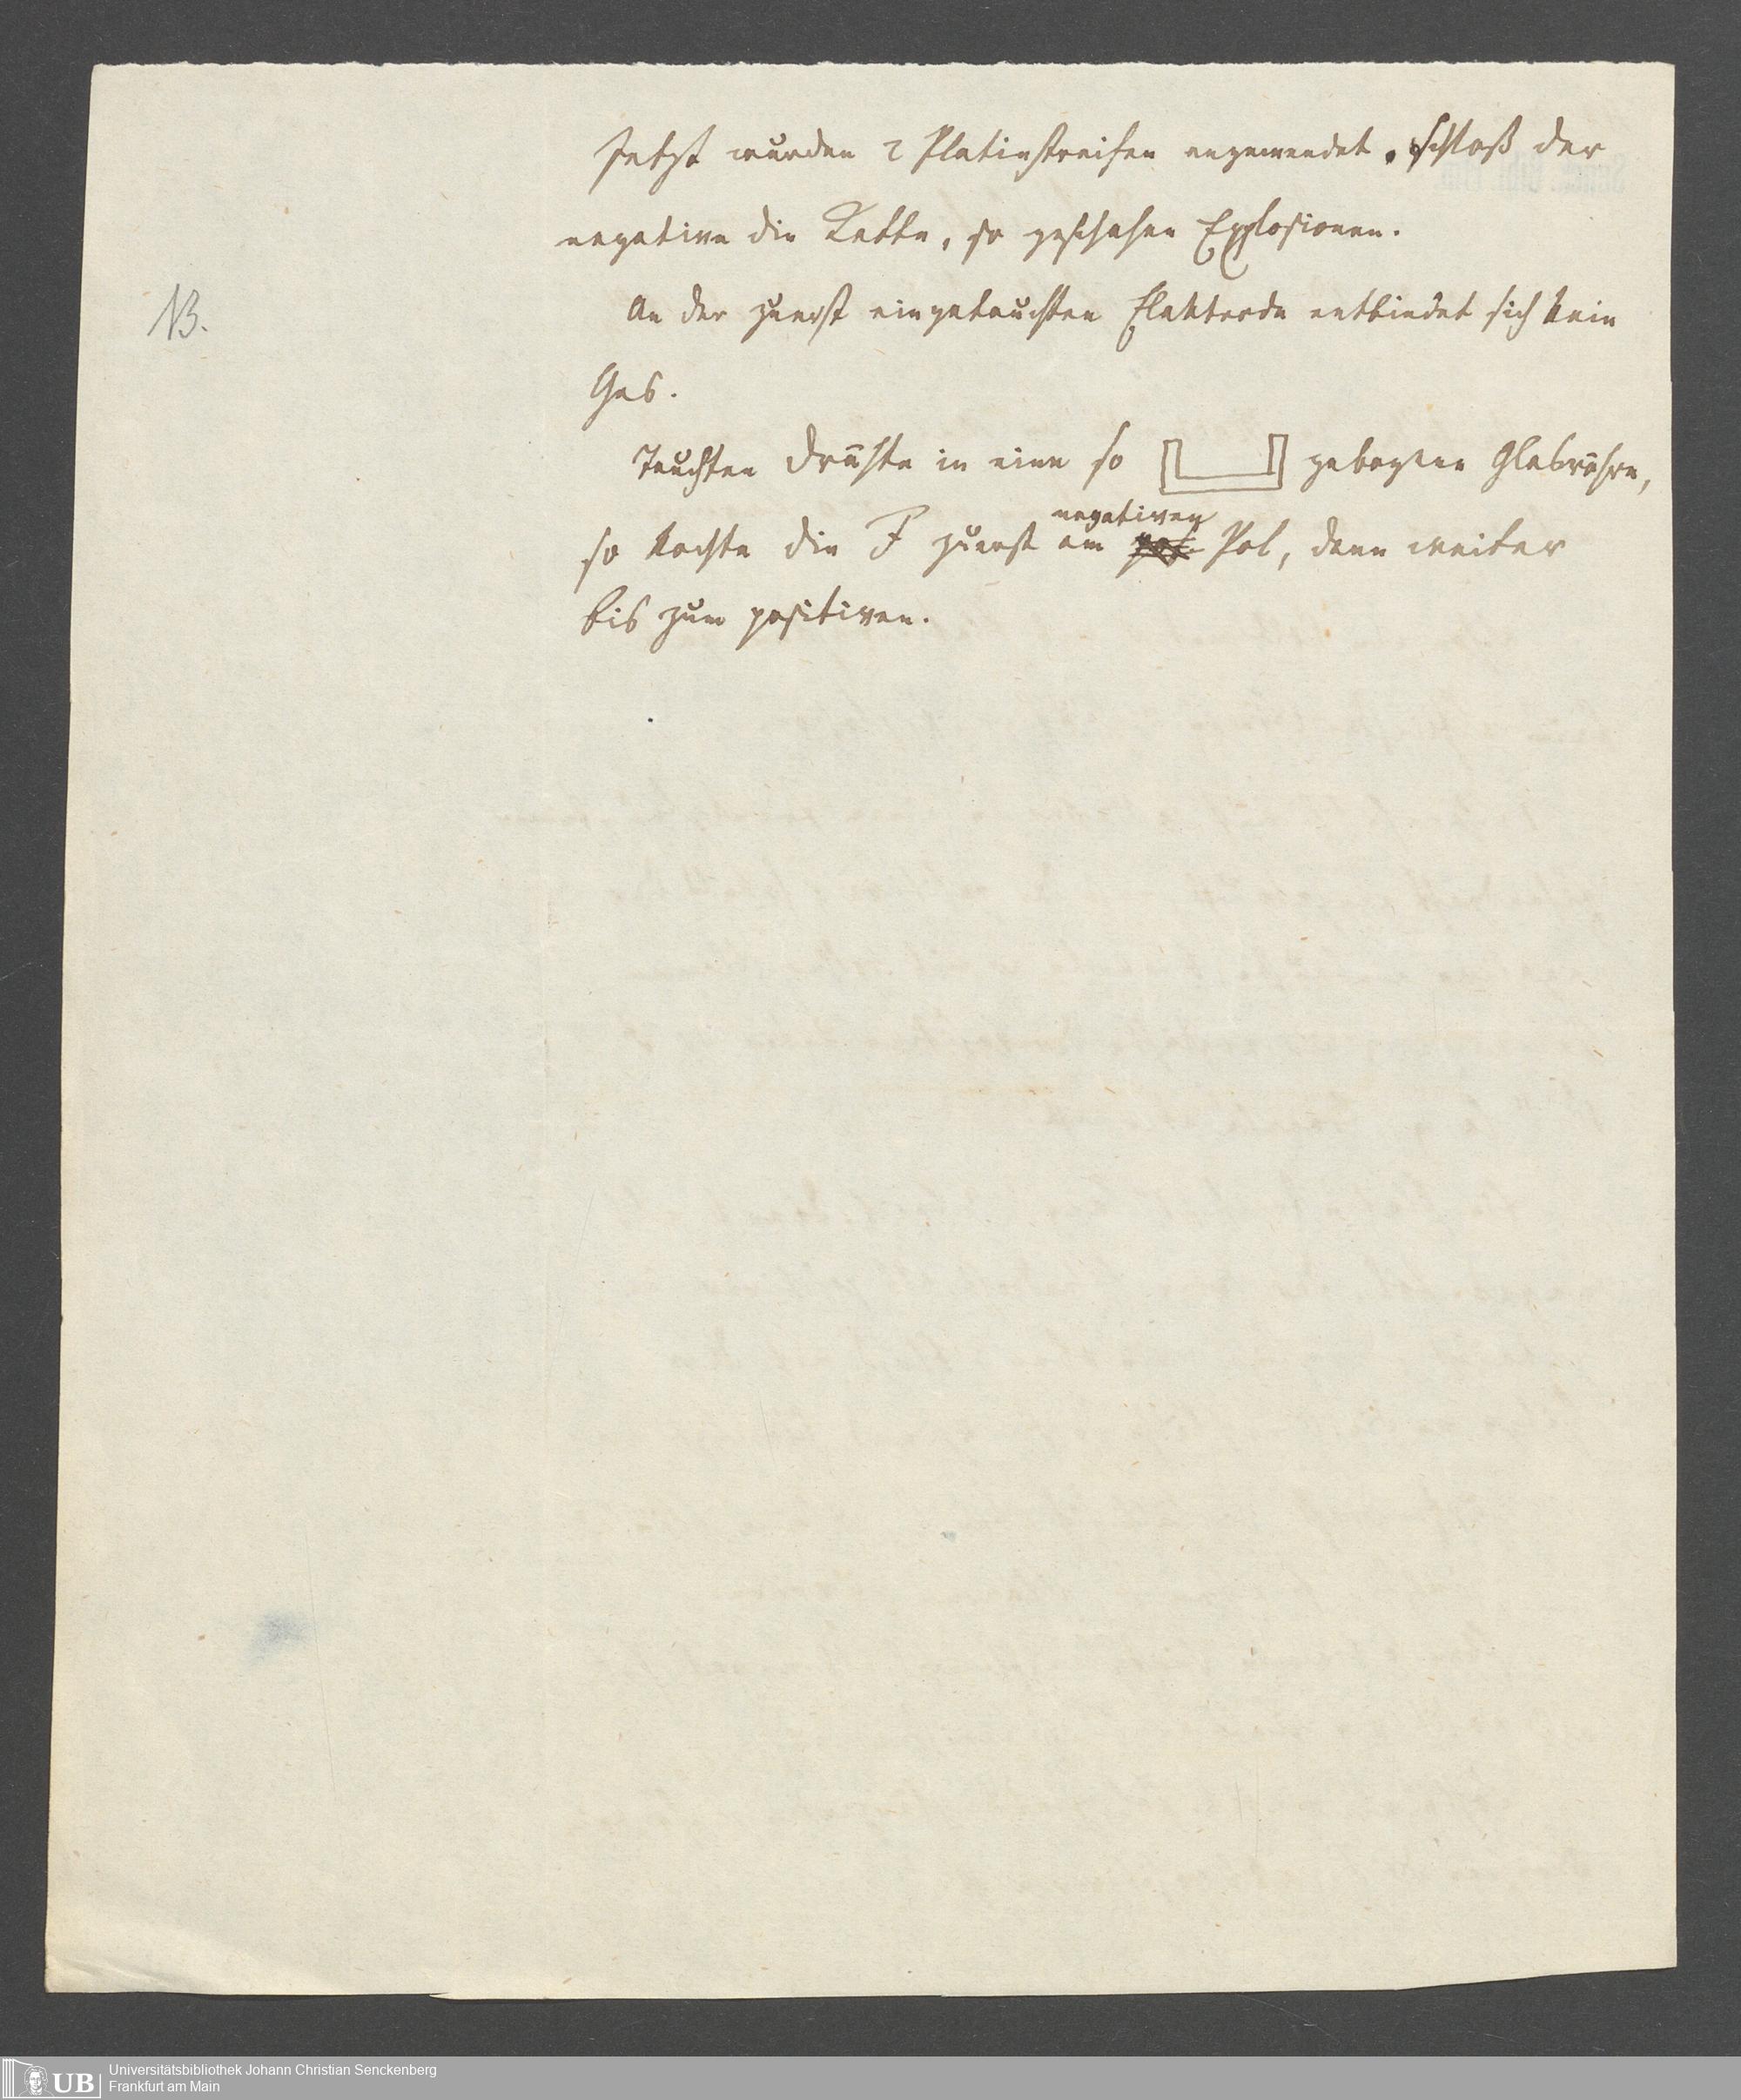 Jetzt wurden 2 Platinstreifen angewendet. schloß der
negative die Kette, so geschahen Explosionen.
NB.
An der zuerst eingetauchten Elektrode entbindet sich kein
Gas.
Tauchten Drähte in eine so gebogene Glasröhre,
negativen
so kochte die F zuerst am pos. Pol, dann weiter
bis zum positiven.
UB
Universitätsbibliothek Johann Christian Senckenberg
Frankfurt am Main